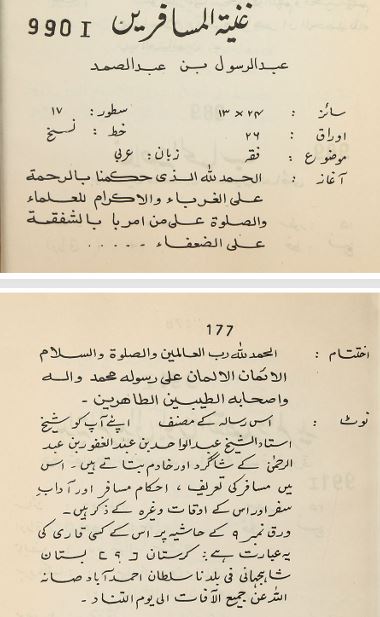 غنیۃ المسافرین
990 I
عبدالرسول بن عبدالصمد
سائز : ۲۴ × ۱۳ سطور : ۱۷
اوراق : ۲۶ خط : نسخ
موضوع : فقہ زبان : عربی
آغاز : الحمدللہ الذی حکمنا بالرحمة
علی الغرباء والاکرام للعلماء
والصلوة علی من امربا بالشفقة
علی الضعفاء . . . . .
177
اختتام : الحمدللہ رب العالمین والصلوة والسلام
الاتمان الاکملان علی رسوله محمد واله
واصحابه الطیبین الطاهرین -
نوٹ : اس رسالہ کے مصنف اپنے آپ کو شیخ
استاد الشیخ عبدالواحد بن عبدالغفور بن عبد
الرحمٰن کے شاگرد اور خادم بتاتے ہیں - اس
میں مسافر کی تعریف ، احکام مسافر اور آداب
سفر اور اس کے اوقات وغیرہ کے ذکر ہیں -
ورق نمبر ۹ کے حاشیہ پر اس کے کسی قاری کی
یہ عبارت ہے : کرستان بستان
شاہجہانی فی بلدنا سلطان احمدآباد صانه
اللہ عن جمیع الآفات الی یوم التناد -